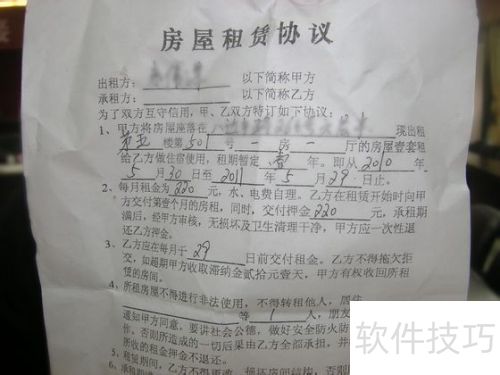 房屋租赁协议
出租方： 以下简称甲方
承租方： 以下简称乙方
为了双方互守信用，甲、乙双方特订如下协议：
1、甲方将房屋座落在 现出租
楼第501号一房一厅的房屋壹套租
给乙方做住宿使用，租期暂定壹年。即从2010年
5月30日至2011年5月29日止。
2、每月租金为220元，水、电费自理。乙方在租赁开始时向甲
方交付第壹个月的房租，同时，交付押金220元，承租期
满后，经甲方审核，无损坏及卫生清理干净，甲方应一次性退
还乙方押金。
3、乙方应在每月于29日前交付租金。乙方不得拖欠拒
交，如超期甲方收取滞纳金贰拾元壹天，甲方有权收回所租
赁的房间。
4、所租房屋不得进行非法使用，不得转租他人，居住
等1人，朋友
通知甲方同意，要讲社会公德，做好安全防火防
作。否则所造成的一切后果由乙方全部承担，并
所收的租金押金不退还。
5、租赁期间，乙方不得更改、损坏房间结构，否则
6、承租期
软件技巧